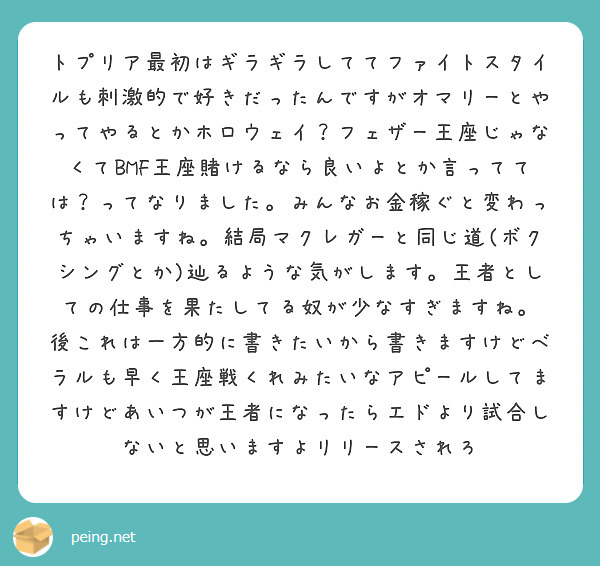 トプリア最初はギラギラしててファイトスタイ
ルも刺激的で好きだったんですがオマリーとや
ってやるとかホロウェイ？フェザー王座じゃな
くてBMF王座賭けるなら良いよとか言ってて
は？ってなりました。みんなお金稼ぐと変わっ
ちゃいますね。結局マクレガーと同じ道(ボク
シングとか)辿るような気がします。王者とし
ての仕事を果たしてる奴が少なすぎますね。
後これは一方的に書きたいから書きますけどベ
ラルも早く王座戦くれみたいなアピールしてま
すけどあいつが王者になったらエドより試合し
ないと思いますよリリースされろ
peing.net